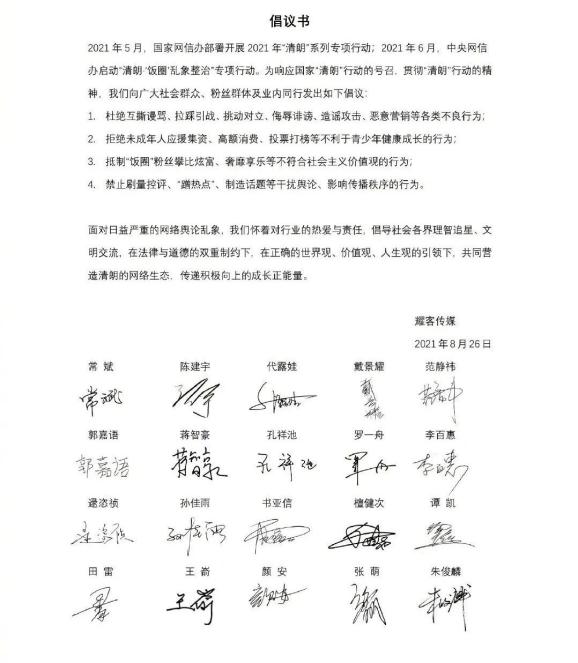 倡议书
2021 年 5 月，国家网信办部署开展 2021 年“清朗”系列专项行动；2021 年 6 月，中央网信
办启动“清朗·‘饭圈’乱象整治”专项行动。为响应国家“清朗”行动的号召，贯彻“清朗”行动的精
神，我们向广大社会群众、粉丝群体及业内同行发出如下倡议：
1. 杜绝互撕谩骂、拉踩引战、挑动对立、侮辱诽谤、造谣攻击、恶意营销等各类不良行为；
2. 拒绝未成年人应援集资、高额消费、投票打榜等不利于青少年健康成长的行为；
3. 抵制“饭圈”粉丝攀比炫富、奢靡享乐等不符合社会主义价值观的行为；
4. 禁止刷量控评、“蹭热点”、制造话题等干扰舆论、影响传播秩序的行为。
面对日益严重的网络舆论乱象，我们怀着对行业的热爱与责任，倡导社会各界理智追星、文
明交流，在法律与道德的双重制约下，在正确的世界观、价值观、人生观的引领下，共同营
造清朗的网络生态，传递积极向上的成长正能量。
耀客传媒
2021 年 8 月 26 日
常 斌 陈建宇 代露娃 戴景耀 范静祎
常斌
郭嘉语 蒋智豪 孔祥池 罗一舟 李百惠
郭嘉语 蒋智豪 孔祥池
逯恣祯 孙佳雨 书亚信 檀健次 谭 凯
田 雷 王 嵛 颜 安 张 萌 朱俊麟